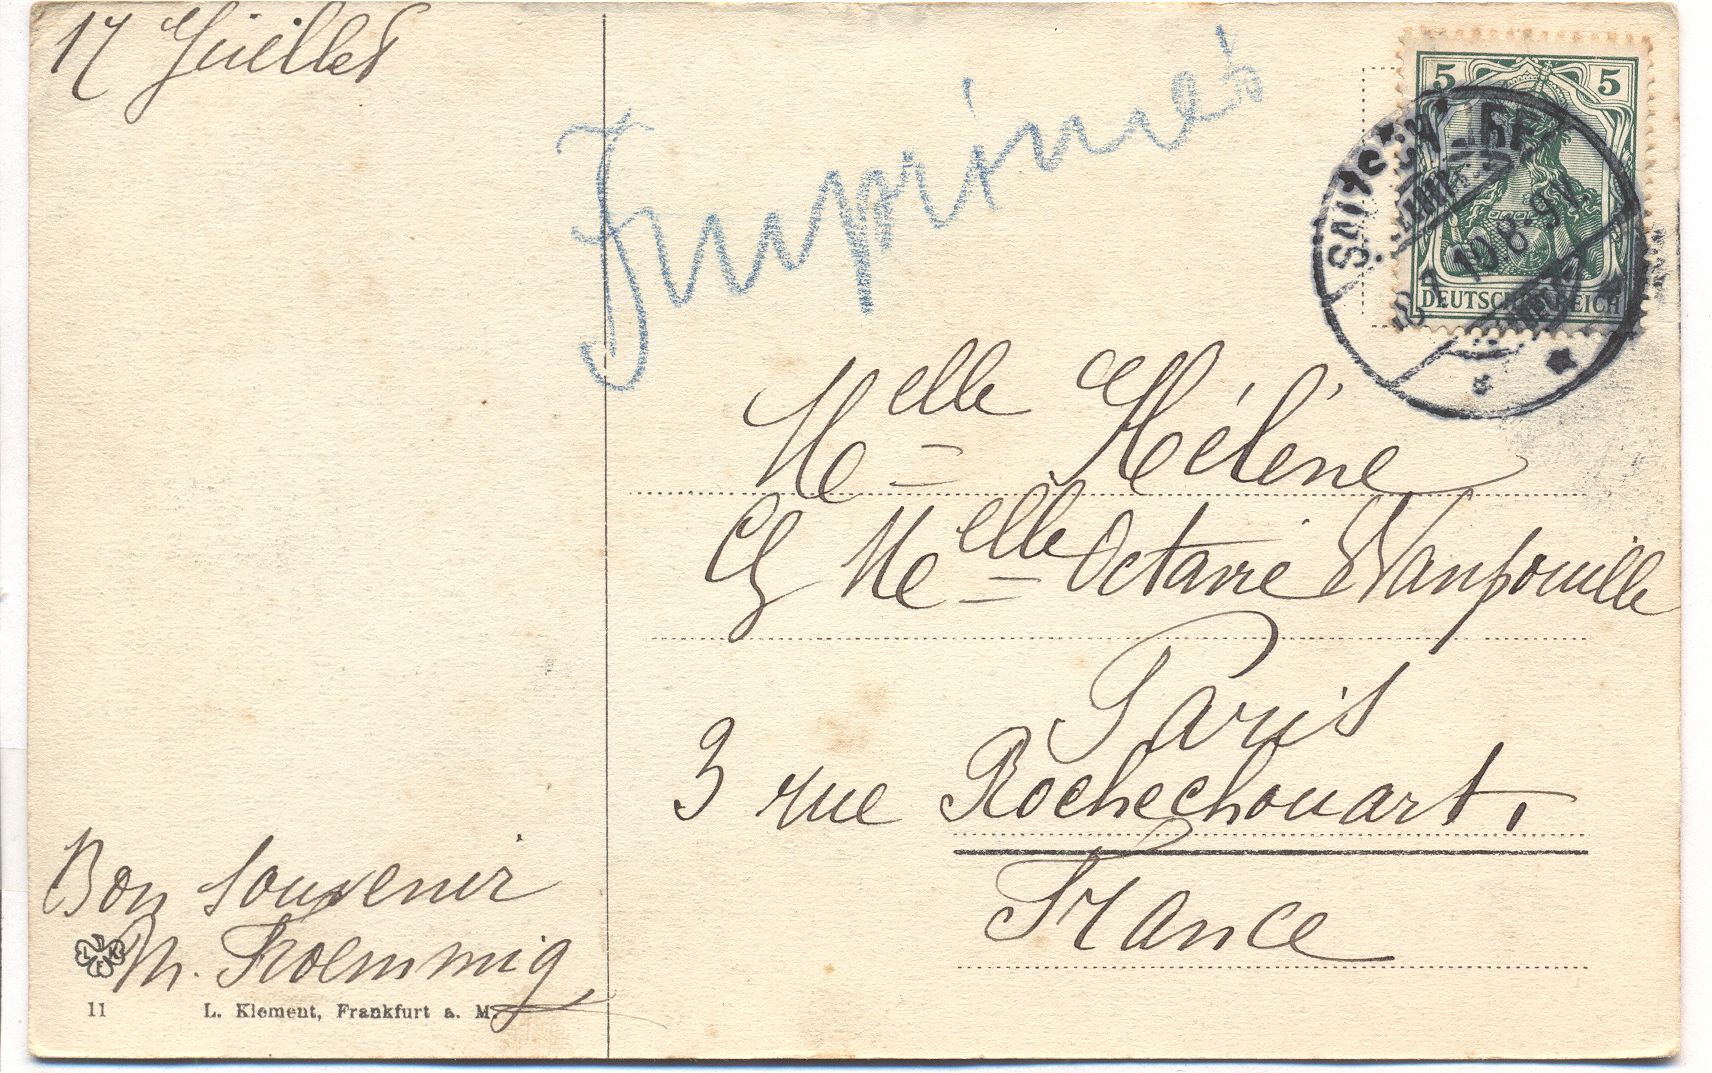 17 Juillet
Imprimés
5 5
DEUTSCHES REICH
10.8-9V.
Melle Hélène
Ch Melle Octavie Vanfouille
Paris
3 rue Rochechouart,
France
Bon souvenir
M. Froemmig
11 L. Klement, Frankfurt a. M.